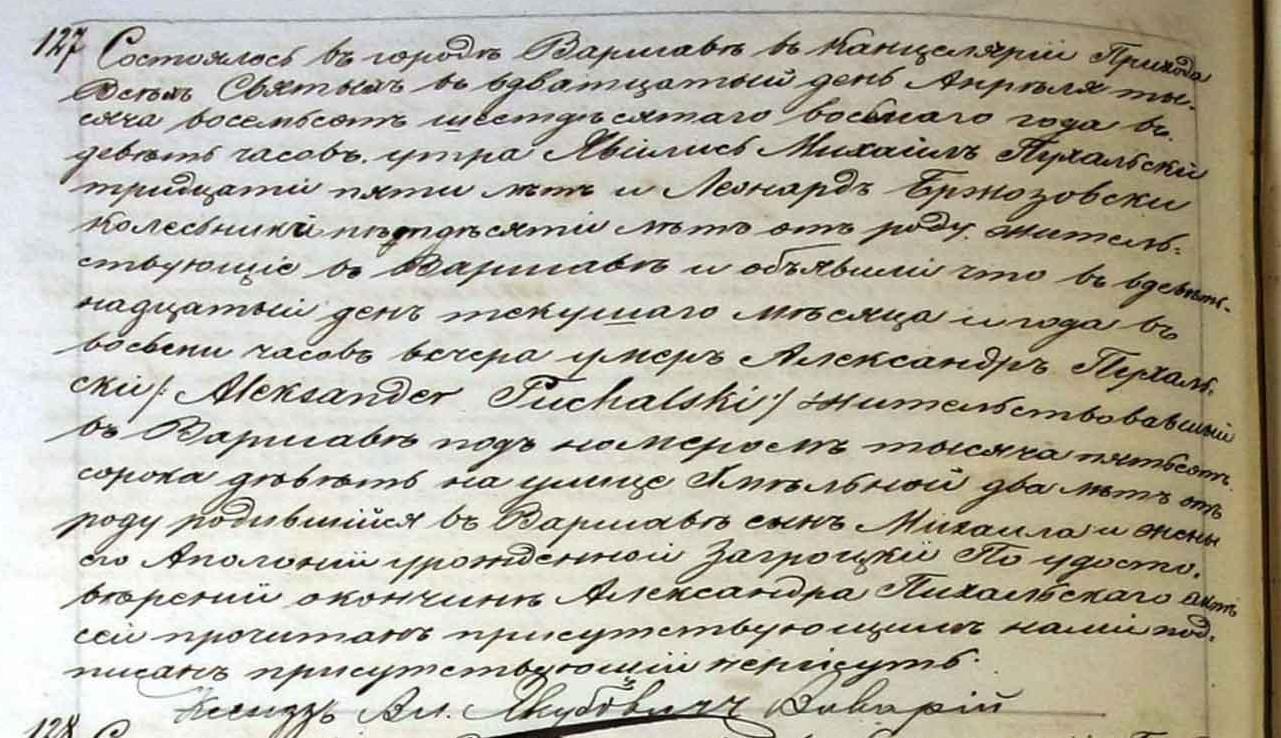 127 Состоялось въ городѣ Варшавѣ въ Канцелярiи Прихода
Всѣхъ Святыхъ въ двадцатый день Апрѣля ты-
сяча восемьсотъ шестдѣсятаго восьмаго года въ
девять часовъ утра Явились Михаилъ Пухальскiй
тридцати пяти лѣтъ и Леонардъ Бржозовски
Колесьники пѣтдѣсяти лѣтъ отъ роду. жытель-
ствующiе въ Варшавѣ и объявили что въ девѣт-
надцатый день текущаго мѣсяца и года въ
восьеми часовъ вечера умеръ Александръ Пухаль-
скiй /: Aleksander Puchalski :/ жительствовавшый
въ Варшавѣ подъ номеромъ тысяча пятьсотъ
сорока девѣть на улице Хмѣльной два лѣтъ отъ
роду родившiйся въ Варшавѣ сынъ Михаила и жены
его Аполонiи урожденной Загроцкiй По удосто-
вѣренiй окончинѣ Александра Пухальскаго Актъ
сей прочитанъ присутствующимъ нами под-
писанъ присутствующiй
Ксендзъ Вл. Якубовичъ Викарiй
128